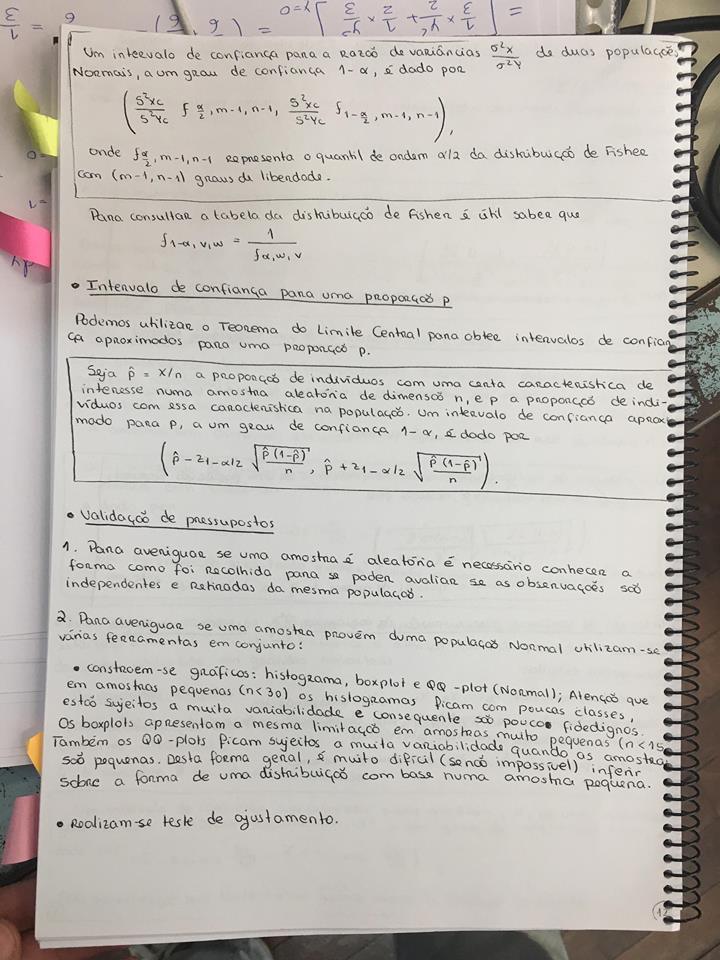 = [1/3 × 1/y² + 1/2 × y²/3] y=0
Um intervalo de confiança para a razão de variâncias σ²X/σ²Y de duas populações
Normais, a um grau de confiança 1-α, é dado por
(S²Xc/S²Yc f α/2, m-1, n-1, S²Xc/S²Yc f 1-α/2, m-1, n-1),
onde f α/2, m-1, n-1 representa o quantil de ordem α/2 da distribuição de Fisher
com (m-1, n-1) graus de liberdade.
Para consultar a tabela da distribuição de Fisher é útil saber que
f 1-α, v, w = 1/f α, w, v
• Intervalo de confiança para uma proporção p
Podemos utilizar o Teorema do Limite Central para obter intervalos de confian
ça aproximados para uma proporção p.
Seja p̂ = x/n a proporção de indivíduos com uma certa característica de
interesse numa amostra aleatória de dimensão n, e p a proporção de indi-
víduos com essa característica na população. Um intervalo de confiança aproxi
mado para p, a um grau de confiança 1-α, é dado por
(p̂ - z 1-α/2 √(p̂(1-p̂)/n), p̂ + z 1-α/2 √(p̂(1-p̂)/n)).
• Validação de pressupostos
1. Para averiguar se uma amostra é aleatória é necessário conhecer a
forma como foi recolhida para se poder avaliar se as observações são
independentes e retiradas da mesma população.
2. Para averiguar se uma amostra provém duma população Normal utilizam-se
várias ferramentas em conjunto:
• constroem-se gráficos: histograma, boxplot e QQ-plot (Normal); Atenção que
em amostras pequenas (n<30) os histogramas ficam com poucas classes,
estão sujeitos a muita variabilidade e consequente são pouco fidedignos.
Os boxplots apresentam a mesma limitação em amostras muito pequenas (n<15
Também os QQ-plots ficam sujeitos a muita variabilidade quando as amostra
são pequenas. Desta forma geral, é muito difícil (se não impossível) inferir
sobre a forma de uma distribuição com base numa amostra pequena.
• Realizam-se teste de ajustamento.